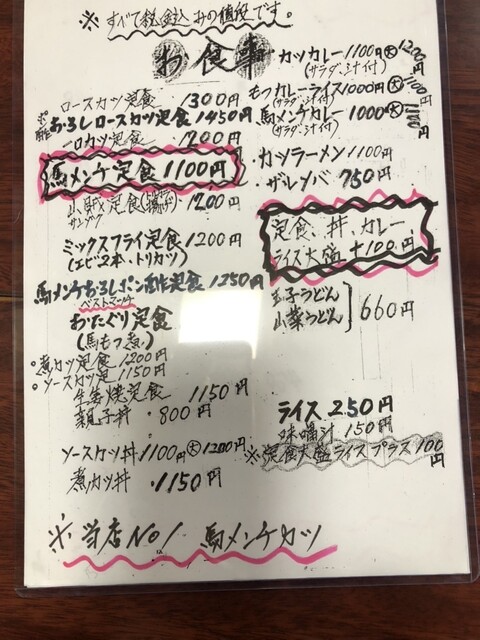 ※すべて税込みの値段です。
お食事
ロースカツ定食 1300円
ポン酢おろしロースカツ定食 1450円
一口カツ定食 1200円
馬メンチ定食 1100円
山賊定食 1200円
ミックスフライ定食 1200円
(エビ2本、トリカツ)
馬メンチおろしポン酢定食 1250円
ベストマッチ
おたぐり定食
(馬もつ煮)
煮カツ定食 1200円
ソースカツ定 1150円
生姜焼定食 1150円
親子丼・800円
ソースカツ丼 1100円 大1200円
煮カツ丼・1150円
カツカレー 1100円 大1200円
(サラダ、汁付)
もつカレーライス 1000円 大1100円
(サラダ、汁付)
馬メンチカレー 1000 大1100円
(サラダ、汁付)
・カツラーメン 1100円
・ザルソバ 750円
定食、丼、カレー
ライス大盛 +100円
玉子うどん
山菜うどん
660円
ライス 250円
味噌汁 150円
※定食大盛ライスプラス100円
※当店No1 馬メンチカツ